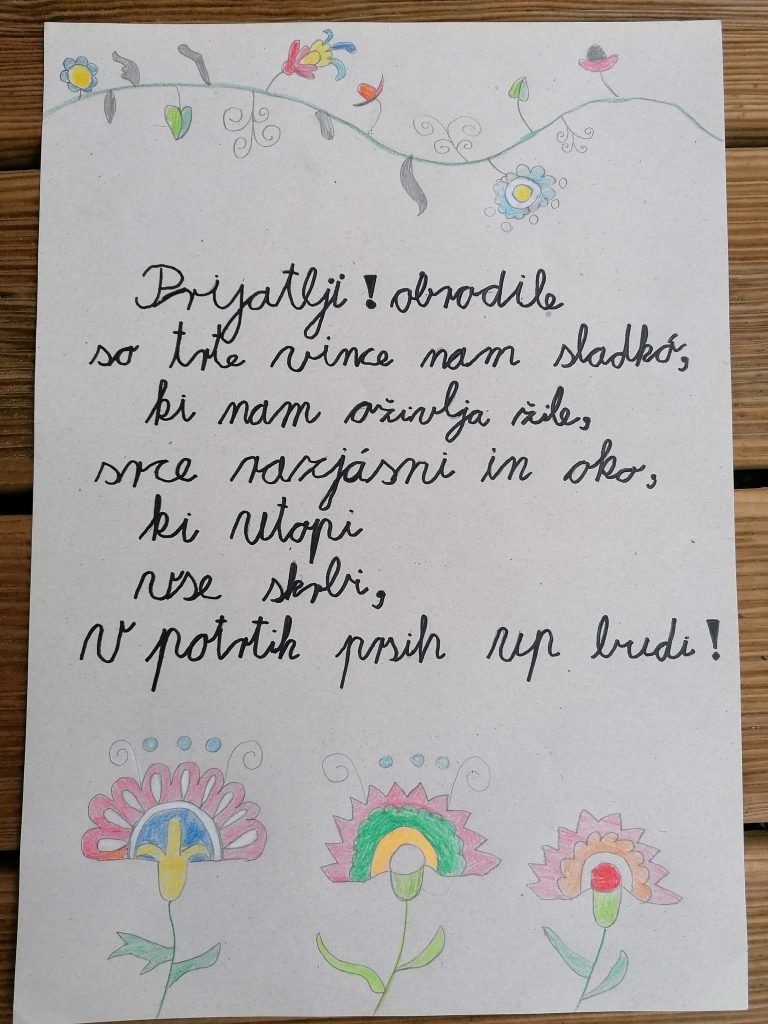 Prijatlji! obrodile
so trte vince nam sladkó,
ki nam oživlja žile,
srce razjásni in oko,
ki utopi
vse skrbi,
v potrtih prsih up budi!